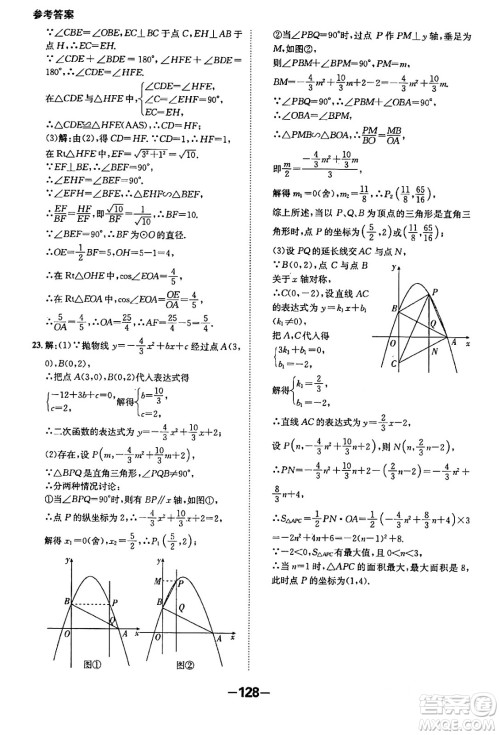 参考答案
∵∠CBE=∠OBE,CD⊥BC于点C,EH⊥AB于
点H,∴CE=EH.
∵∠CDE+∠BDE=180°,∠HFE+∠BDE=180°,
∴∠CDE=∠HFE.在△CDE和△HFE中,
{∠CDE=∠HFE,
∠C=∠EHF=90°,
CE=EH,
∴△CDE≌△HFE(AAS),∴CD=HF.
(3)解:由(2),得CD=HF.又CD=1,∴HF=1.
在Rt△HFE中,EF=√(3²+1²)=√10.
∵EF⊥BE,∴∠BEF=90°,
∴∠EHF=∠BEF=90°.
∵∠EFH=∠BFE,∴△EHF∽△BEF,
∴EF/BF=HF/EF,即√10/BF=1/√10,∴BF=10.
∵∠BEF=90°,∴BF为⊙O的直径.
∴OE=1/2BF=5,∴OH=5-1=4,
∴在Rt△OHE中,cos∠EOA=4/5,
∴在Rt△EOA中,cos∠EOA=OE/OA=4/5,
∴5/OA=4/5,∴OA=25/4,∴AF=25/4-5=5/4.
23.解:(1)∵抛物线y=-4/3x²+bx+c经过点A(3,
0),B(0,2),
∴把点A(3,0),B(0,2)代入表达式得
{-12+3b+c=0, c=2, 解得{b=10/3, c=2,
∴二次函数的表达式为y=-4/3x²+10/3x+2.
(2)存在,设P(m,-4/3m²+10/3m+2).
∵△BPQ是直角三角形,∠BQP≠90°,
∴分两种情况讨论:
①当∠BPQ=90°时,有BP∥x轴,如图①;
∴点P的纵坐标为2,∴-4/3x²+10/3x+2=2,
解得x₁=0(舍),x₂=5/2,∴P₁(5/2,2);
y
B
P
Q
O
A
x
图①
y
M
P
B
Q
O
A
x
图②
②当∠PBQ=90°时,过点P作PM⊥y轴,如图②,
则∠PMB=90°,PM=m,
BM=-4/3m²+10/3m+2-2=-4/3m²+10/3m.
∵∠PBQ=90°,∴∠PBM+∠OBA=90°.
∵∠BPM+∠PBM=90°,∴∠BPM=∠OBA,
∴△PBM∽△BAO,∴PM/BO=MB/OA,
即m/2=(-4/3m²+10/3m)/3,
解得m₁=0(舍),m₂=11/8,∴P₂(11/8,65/16).
综上所述,当以P、Q、B为顶点的三角形是直角三
角形时,点P的坐标为(5/2,2)或(11/8,65/16).
(3)设PQ的延长线交AC与点N,
∵B(0,2),点B、点C
关于x轴对称,
∴C(0,-2),设直线AC
的表达式为y=k₁x+b₁,
把A(3,0),C(0,-2)代入
得
{3k₁+b₁=0, b₁=-2, 解得{k₁=2/3, b₁=-2,
y
P
B
Q
O
A
x
N
C
∴直线AC的表达式为y=2/3x-2,
设P(n,-4/3n²+10/3n+2),则N(n,2/3n-2),
∴PN=-4/3n²+10/3n+2-(2/3n-2)=
-4/3n²+8/3n+4,
∴S△APC=1/2PN·OA=1/2×3(-4/3n²+8/3n+4)
=-2n²+4n+6=-2(n-1)²+8.
∵-2<0,S△APC有最大值,且0<n<3,
∴当n=1时,S△APC有最大值,最大值是8,
此时点P的坐标为(1,4).
-128-